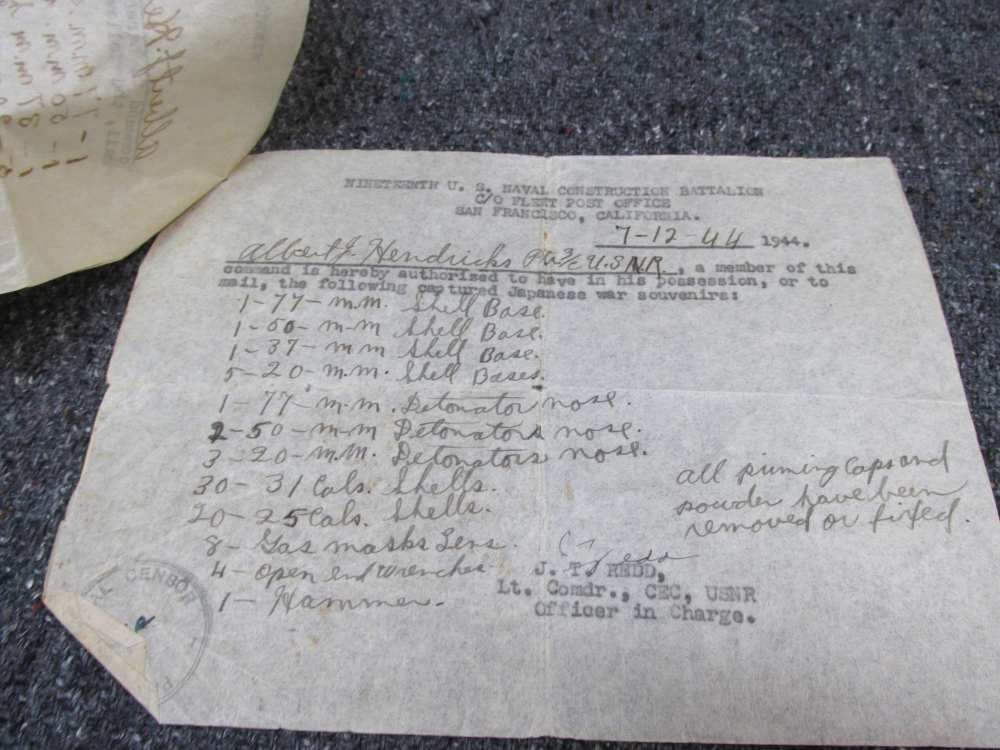 NINETEENTH U. S. NAVAL CONSTRUCTION BATTALION
C/O FLEET POST OFFICE
SAN FRANCISCO, CALIFORNIA.
7-12-44 1944.
Albert J. Hendricks U.S.N.R., a member of this
command is hereby authorized to have in his possession, or to
mail, the following captured Japanese war souvenirs:
1-77-m.m. Shell Base.
1-50-m-m Shell Base.
1-37-m m Shell Base.
5-20-m.m. Shell Bases.
1-77-m-m. Detonator nose.
2-50-m-m Detonators nose.
3-20-m.m. Detonators nose.
30-31 Cals. Shells.
20-25 Cals. Shells.
8-Gas masks Lens.
4-Open end wrenches
1-Hammer.
all priming Caps and
powder have been
removed or fixed.
J. T. Redd
J. T. REDD,
Lt. Comdr., CEC, USNR
Officer in Charge.
CENSOR